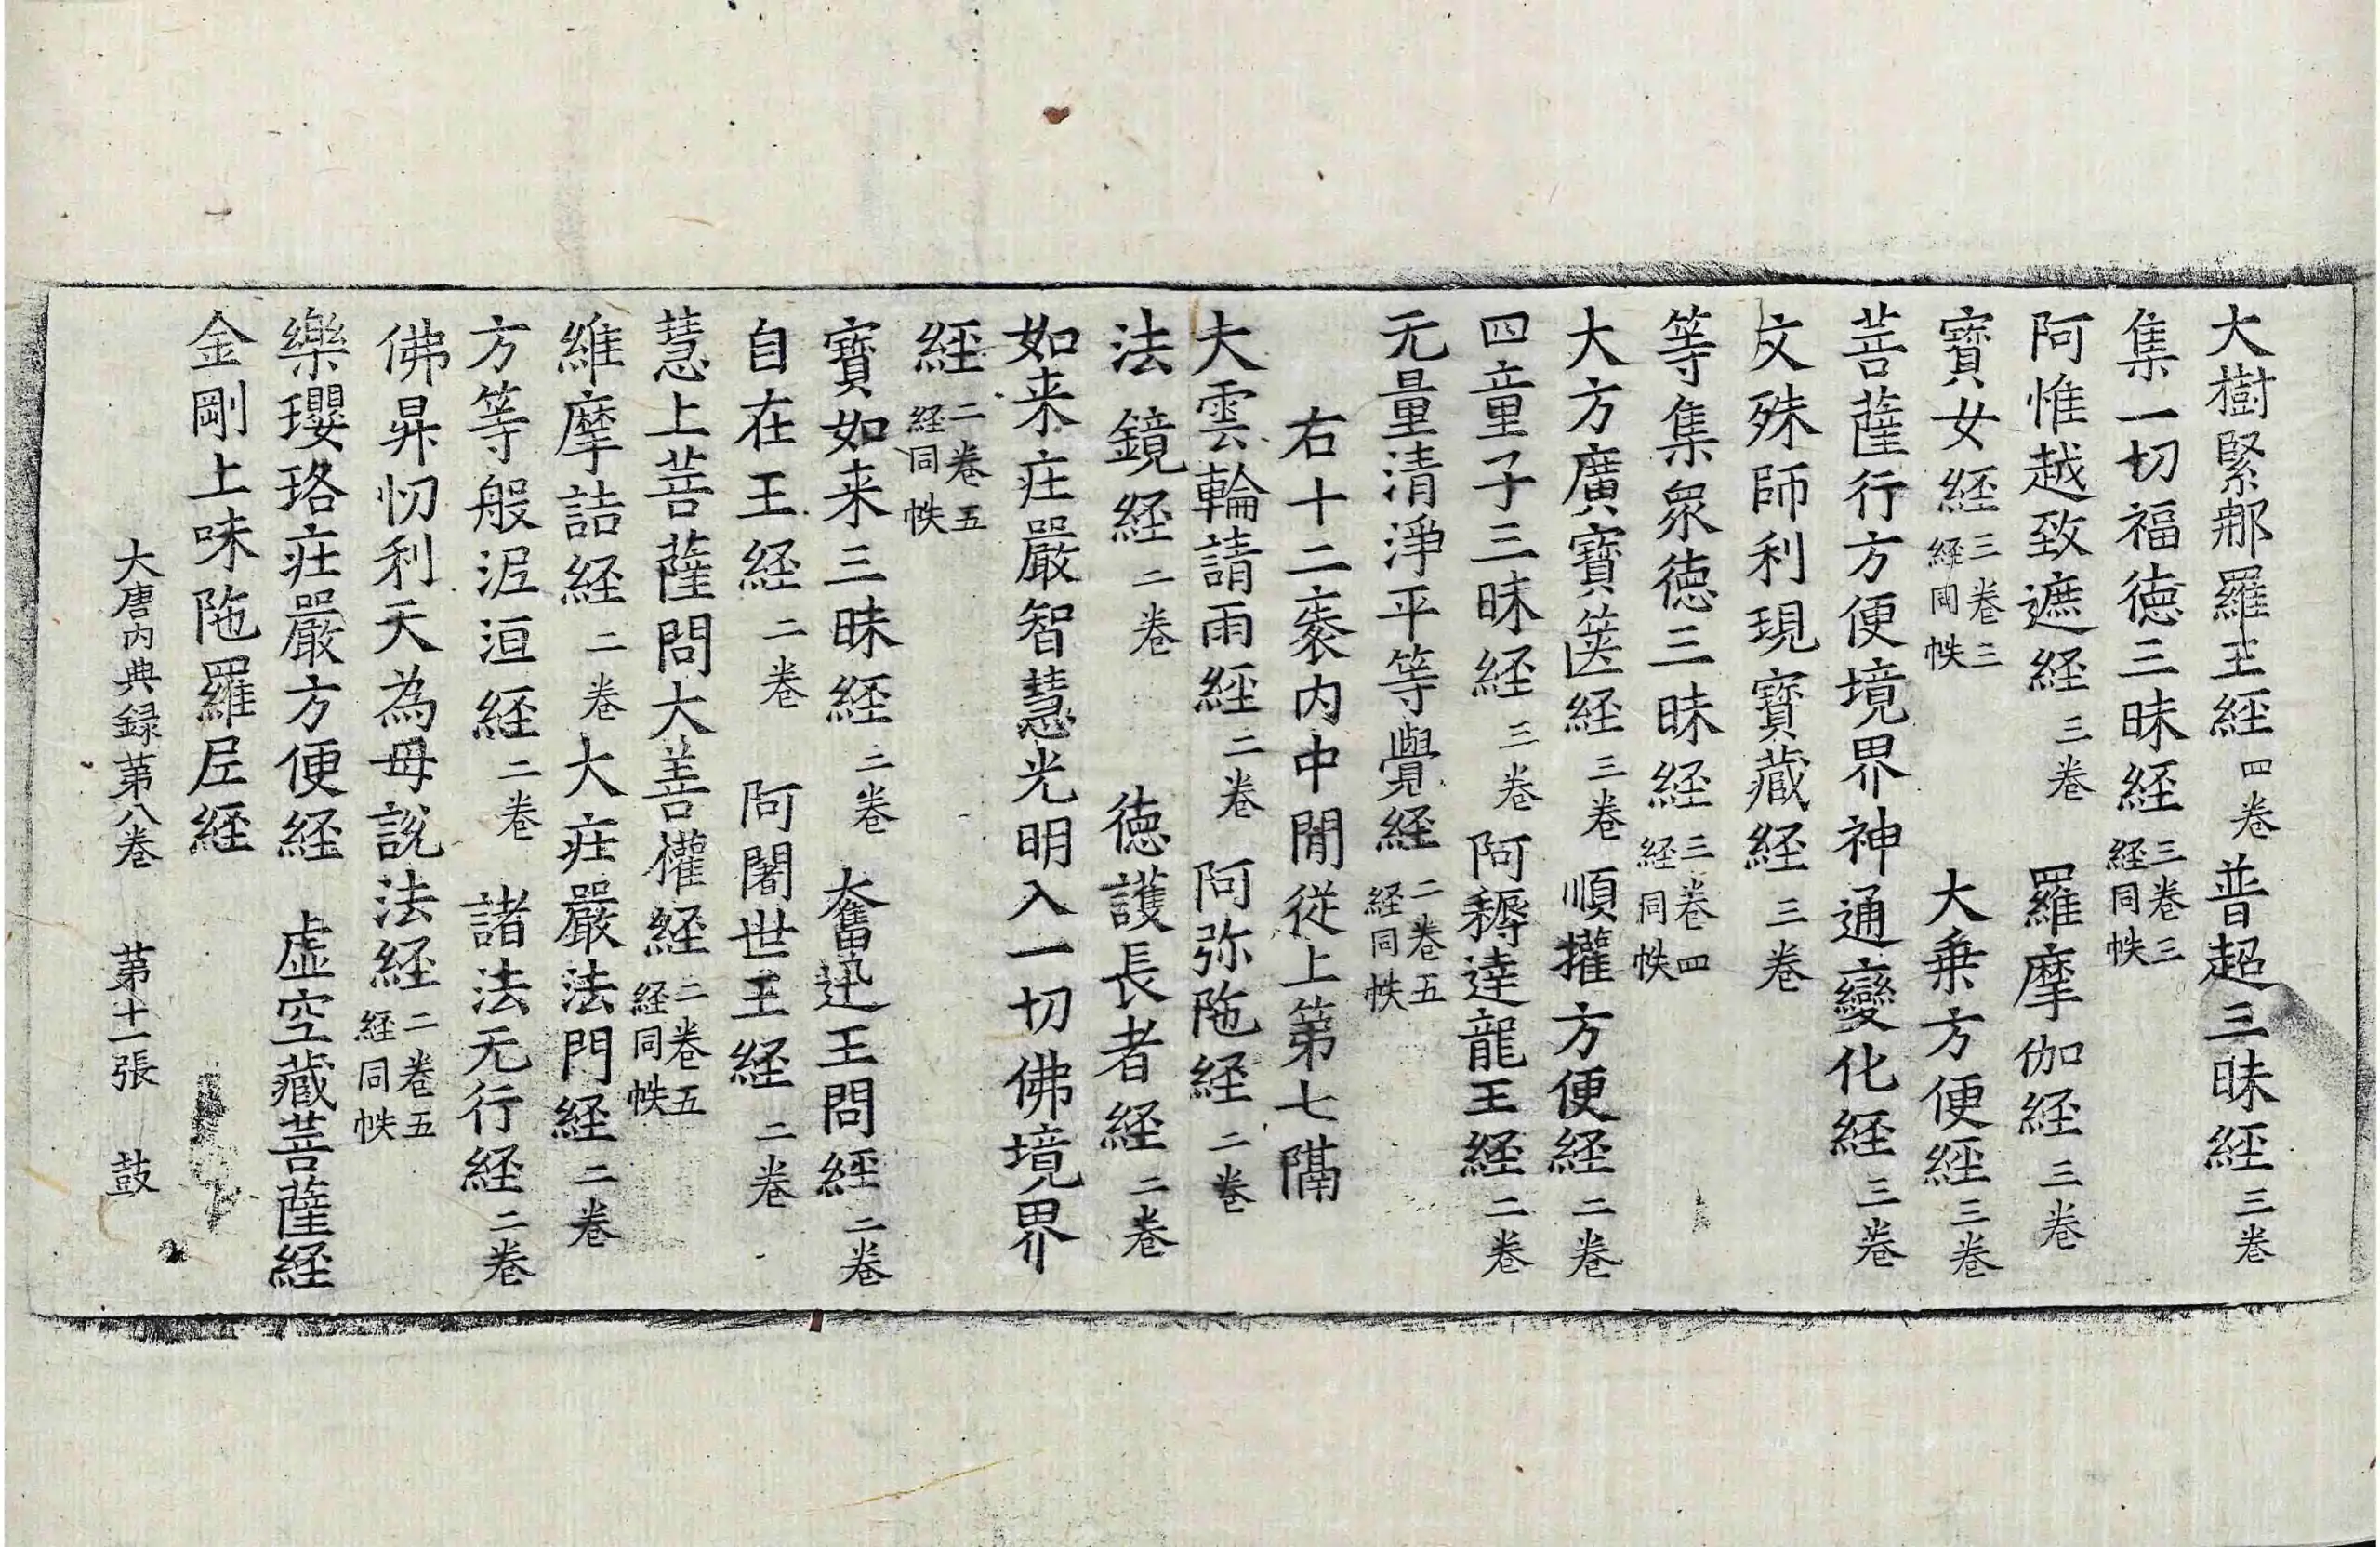 大樹緊那羅王経四卷普超三昧経三卷
集一切福徳三昧経三卷三経同帙
阿惟越致遮経三卷羅摩伽経三卷
寳女経三卷三経同帙大乗方便経三卷
菩薩行方便境界神通變化経三卷
文殊師利現寳藏経三卷
等集衆徳三昧経三卷四経同帙
大方廣寳篋経三卷順攉方便経二卷
四童子三昧経三卷阿耨達龍王経二卷
无量清淨平等覺経二卷五経同帙
右十二袠内中閒從上第七隔
大雲輪請雨經二卷阿弥陁経二卷
法鏡経二卷徳護長者経二卷
如来庄嚴智慧光明入一切佛境界
経二卷五経同帙
寳如来三昧経二卷奮迅王問經二卷
自在王経二卷阿闍世王経二卷
慧上菩薩問大善權経二卷五経同帙
維摩詰経二卷大庄嚴法門経二卷
方等般泥洹経二卷諸法无行経二卷
佛昇忉利天為母說法経二卷五経同帙
樂瓔珞庄嚴方便経虚空藏菩薩経
金剛上味陁羅尼経
大唐内典録苐八卷苐十一張鼓